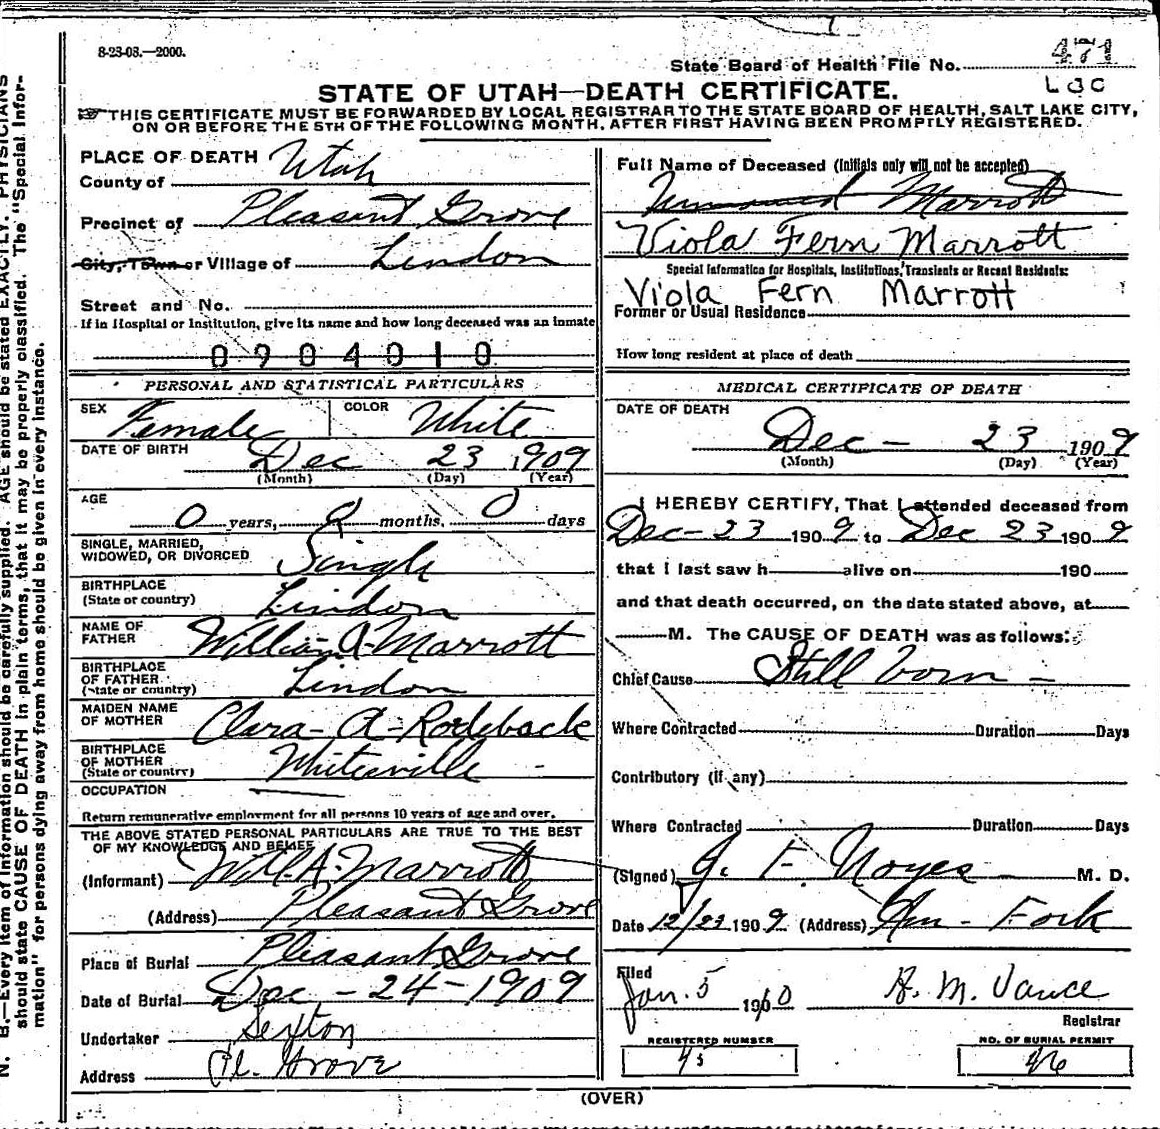 8-23-08.—2000.
State Board of Health File No. 471
STATE OF UTAH—DEATH CERTIFICATE.
THIS CERTIFICATE MUST BE FORWARDED BY LOCAL REGISTRAR TO THE STATE BOARD OF HEALTH, SALT LAKE CITY,
ON OR BEFORE THE 5TH OF THE FOLLOWING MONTH, AFTER FIRST HAVING BEEN PROMPTLY REGISTERED.
PLACE OF DEATH
County of Utah
Precinct of Pleasant Grove
City, Town or Village of Lindon
Street and No.
If in Hospital or Institution, give its name and how long deceased was an inmate
0904010
PERSONAL AND STATISTICAL PARTICULARS
SEX Female COLOR White
DATE OF BIRTH Dec 23 1909
(Month) (Day) (Year)
AGE
0 years, 0 months, 0 days
SINGLE, MARRIED,
WIDOWED, OR DIVORCED Single
BIRTHPLACE
(State or country) Lindon
NAME OF
FATHER William A Marrott
BIRTHPLACE
OF FATHER
(State or country) Lindon
MAIDEN NAME
OF MOTHER Clara A Rodeback
BIRTHPLACE
OF MOTHER
(State or country) Whitesville
OCCUPATION
Return remunerative employment for all persons 10 years of age and over.
THE ABOVE STATED PERSONAL PARTICULARS ARE TRUE TO THE BEST
OF MY KNOWLEDGE AND BELIEF
(Informant) Will A. Marrott
(Address) Pleasant Grove
Place of Burial Pleasant Grove
Date of Burial Dec - 24 - 1909
Undertaker Sexton
Address Pl. Grove
Full Name of Deceased (Initials only will not be accepted)
Unnamed Marrott
Viola Fern Marrott
Special Information for Hospitals, Institutions, Transients or Recent Residents:
Viola Fern Marrott
Former or Usual Residence
How long resident at place of death
MEDICAL CERTIFICATE OF DEATH
DATE OF DEATH
Dec - 23 1909
(Month) (Day) (Year)
I HEREBY CERTIFY, That I attended deceased from
Dec - 23 1909 to Dec 23 1909
that I last saw h alive on 190
and that death occurred, on the date stated above, at
M. The CAUSE OF DEATH was as follows:
Chief Cause Still born -
Where Contracted Duration Days
Contributory (if any)
Where Contracted Duration Days
(Signed) J. F. Noyes M. D.
Date 12/23 1909 (Address) Am - Fork
Filed
Jan. 5 1910 A. M. Vance
Registrar
REGISTERED NUMBER
45
NO. OF BURIAL PERMIT
46
(OVER)
N. B.—Every item of information should be carefully supplied. AGE should be stated EXACTLY. PHYSICIANS
should state CAUSE OF DEATH in plain terms, that it may be properly classified. The "Special Infor-
mation" for persons dying away from home should be given in every instance.